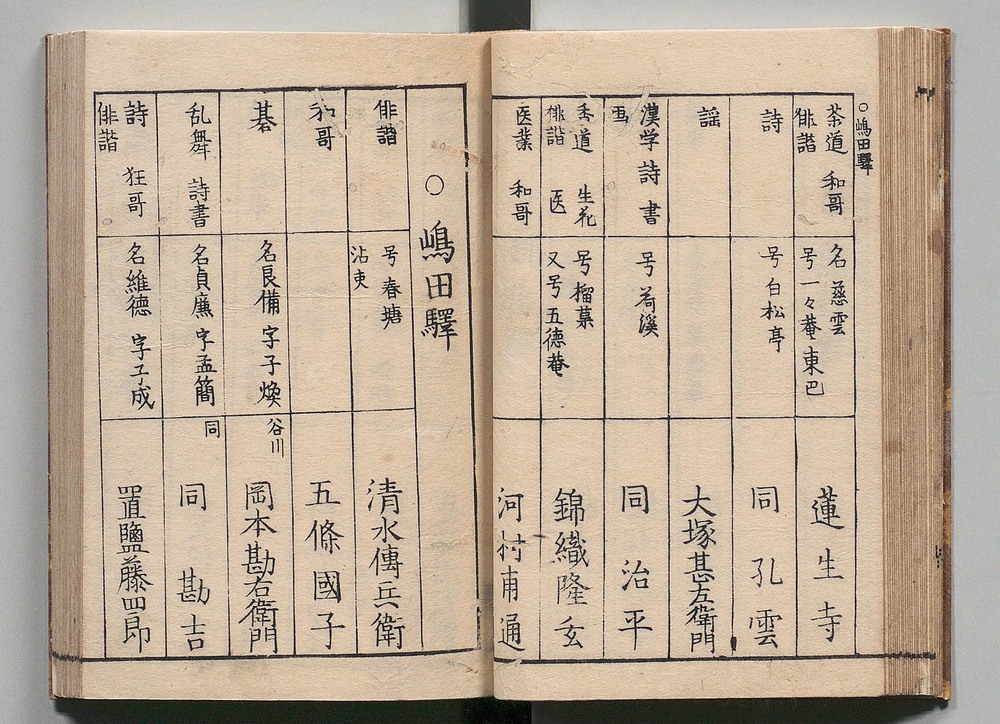 ○嶋田驛
茶道 和哥
俳諧
名 慈雲
号 一々菴 東巴
蓮生寺
詩
号 白松亭
同 孔雲
謡
大塚甚左衛門
漢学 詩 書
画
号 荷溪
同 治平
香道 生花
俳諧 医
号 榴菓
又号 五德菴
錦織隆玄
医業 和哥
河村甫通
○ 嶋田驛
俳諧
号 春塘
沾叓
清水傳兵衛
和哥
五條國子
碁
名良備 字子煥
谷川
岡本勘右衛門
乱舞 詩書
名貞廉 字孟簡
同
同 勘吉
詩 狂哥
俳諧
名維德 字子成
置鹽藤四郎